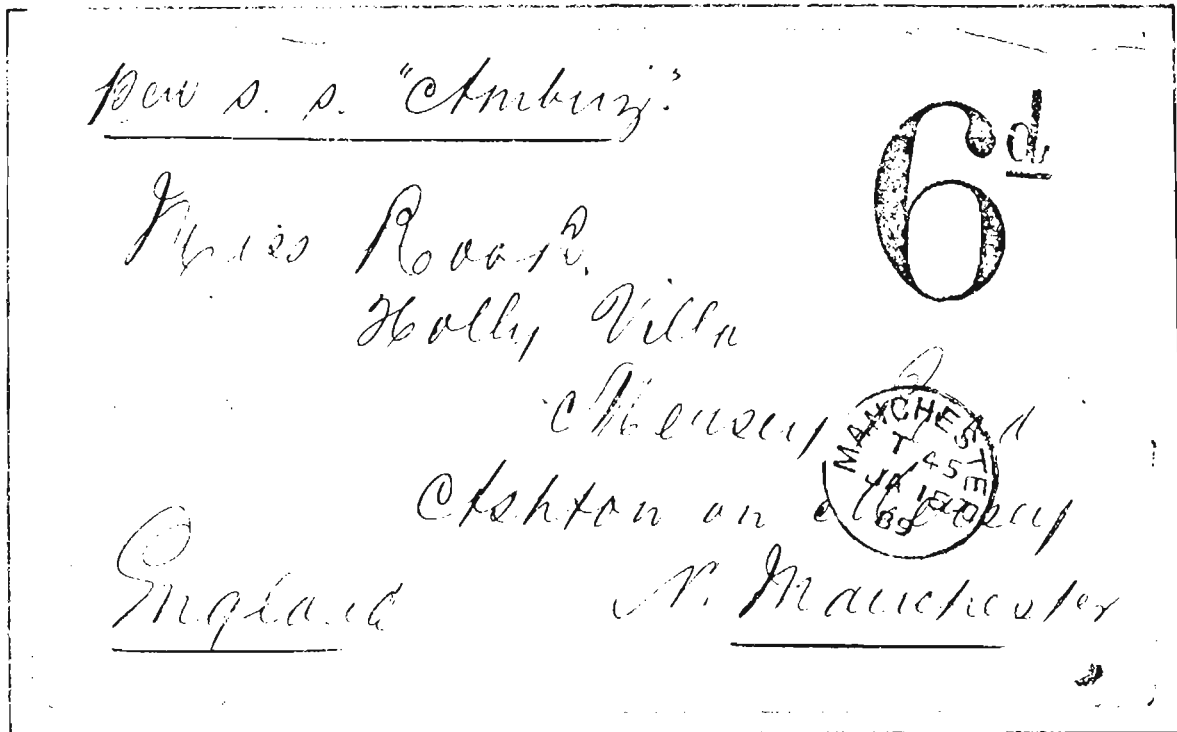 per s. s. "Ambriz".
6d
Miss Rook.
Holly Villa
Mersey Road
Ashton on Mersey
N. Manchester
England
MANCHESTER
45
JA
89